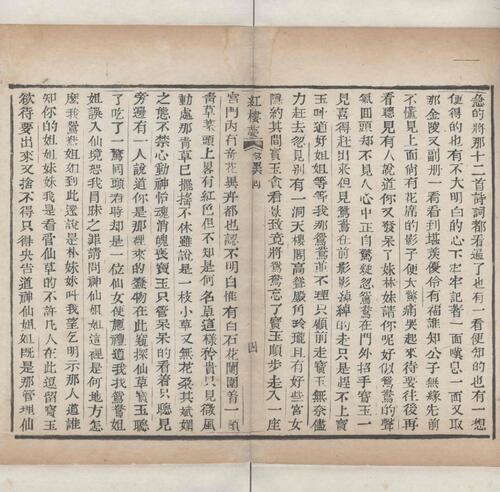 意的將那十二首詩詞都看遍了也有一看便知的也有一想
便得的也有不大明白的心下牢牢記着一面嘆息一面又取
那金陵又副冊一看看到堪羨優伶有福誰知公子無緣先前
不懂見上面尚有花席的影子便大驚痛哭起來待要往後再
看聽見有人說道你又發呆了林妹妹請你呢好似鴛鴦的聲
氣回頭却不見人心中正自驚疑忽鴛鴦在門外招手寶玉一
見喜得赶出來但見鴛鴦在前影影綽綽的走只是趕不上寶
玉叫道好姐姐等等我那鴛鴦並不理只顧前走寶玉無奈儘
力赶去忽見別有一洞天樓閣高聳殿角玲瓏且有好些宮女
隱約其間寶玉貪看景致竟將鴛鴦忘了寶玉順步走入一座
紅樓夢 四
宮門內有奇花異卉都也認不明白惟有白石花闌圍着一顆
青草葉頭上畧有紅色但不知是何名草這樣矜貴只見微風
動處那青草已擺搖不休雖說是一枝小草又無花朵其嫵媚
之態不禁心動神怡魂消魄喪寶玉只管呆呆的看着只聽見
旁邊有一人說道你是那裡來的蠢物在此窺探仙草寶玉聽
了吃了一驚回頭看時却是一位仙女便施禮道我找鴛鴦姐
姐誤入仙境恕我冒昧之罪請問神仙姐姐這裡是何地方怎
麽我鴛鴦姐姐到此還說是林妹妹叫我望乞明示那人道誰
知你的姐姐妹妹我是看管仙草的不許凡人在此逗留寶玉
欲待要出來又捨不得只得央告道神仙姐姐既是那管理仙